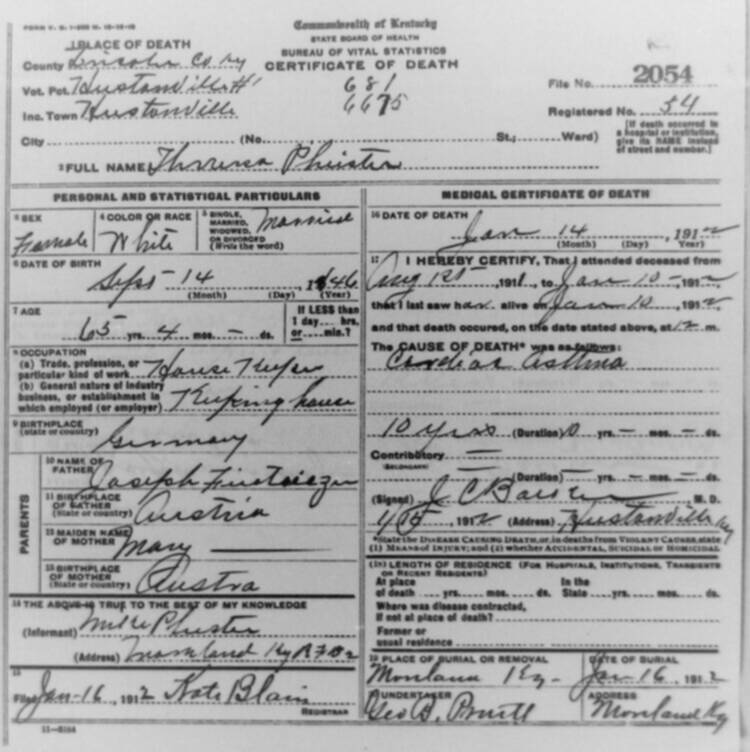 Commonwealth of Kentucky
STATE BOARD OF HEALTH
BUREAU OF VITAL STATISTICS
CERTIFICATE OF DEATH
1 PLACE OF DEATH
County Lincoln Co Ky
Vot. Pct. Hustonville #1
Inc. Town Hustonville
681
6675
File No. 2054
Registered No. 54
City (No. St.; Ward)
[If death occurred in a hospital or institution, give its NAME instead of street and number.]
2 FULL NAME Theresa Pheister
PERSONAL AND STATISTICAL PARTICULARS
3 SEX Female
4 COLOR OR RACE White
5 SINGLE, MARRIED, WIDOWED, OR DIVORCED (Write the word) Married
6 DATE OF BIRTH
Sept 14 1846
(Month) (Day) (Year)
7 AGE
65 yrs. 4 mos. – ds.
If LESS than 1 day.... hrs. or.... min.?
8 OCCUPATION
(a) Trade, profession, or particular kind of work House Keeper
(b) General nature of industry business, or establishment in which employed (or employer) Keeping house
9 BIRTHPLACE (State or country) Germany
PARENTS
10 NAME OF FATHER Joseph
11 BIRTHPLACE OF FATHER (State or country) Austria
12 MAIDEN NAME OF MOTHER Mary
13 BIRTHPLACE OF MOTHER (State or country) Austra
14 THE ABOVE IS TRUE TO THE BEST OF MY KNOWLEDGE
(Informant) Mike Pheister
(Address) Moreland Ky
15
Filed Jan-16, 1912 Kate Blain
REGISTRAR
11-5184
MEDICAL CERTIFICATE OF DEATH
16 DATE OF DEATH
Jan 14, 1912
(Month) (Day) (Year)
17 I HEREBY CERTIFY, That I attended deceased from
Aug 1st, 1911, to Jan 10-, 1912
that I last saw her alive on Jan 10, 1912
and that death occured, on the date stated above, at 12 m.
The CAUSE OF DEATH* was as follows:
Cardiac Asthma
10 yrs (Duration) 0 yrs. – mos. – ds.
Contributory –
(SECONDARY)
– (Duration) – yrs. – mos. – ds.
(Signed) J C M.D.
1912 (Address) Hustonville Ky
*State the DISEASE CAUSING DEATH, or, in deaths from VIOLENT CAUSES, state
(1) MEANS OF INJURY; and (2) whether ACCIDENTAL, SUICIDAL or HOMICIDAL
18 LENGTH OF RESIDENCE (FOR HOSPITALS, INSTITUTIONS, TRANSIENTS OR RECENT RESIDENTS)
At place of death yrs. mos. ds. In the State yrs. mos. ds.
Where was disease contracted,
if not at place of death?
Former or
usual residence
19 PLACE OF BURIAL OR REMOVAL
Moreland Ky-
DATE OF BURIAL
Jan-16, 1912
20 UNDERTAKER
Geo B. Pruitt
ADDRESS
Moreland Ky